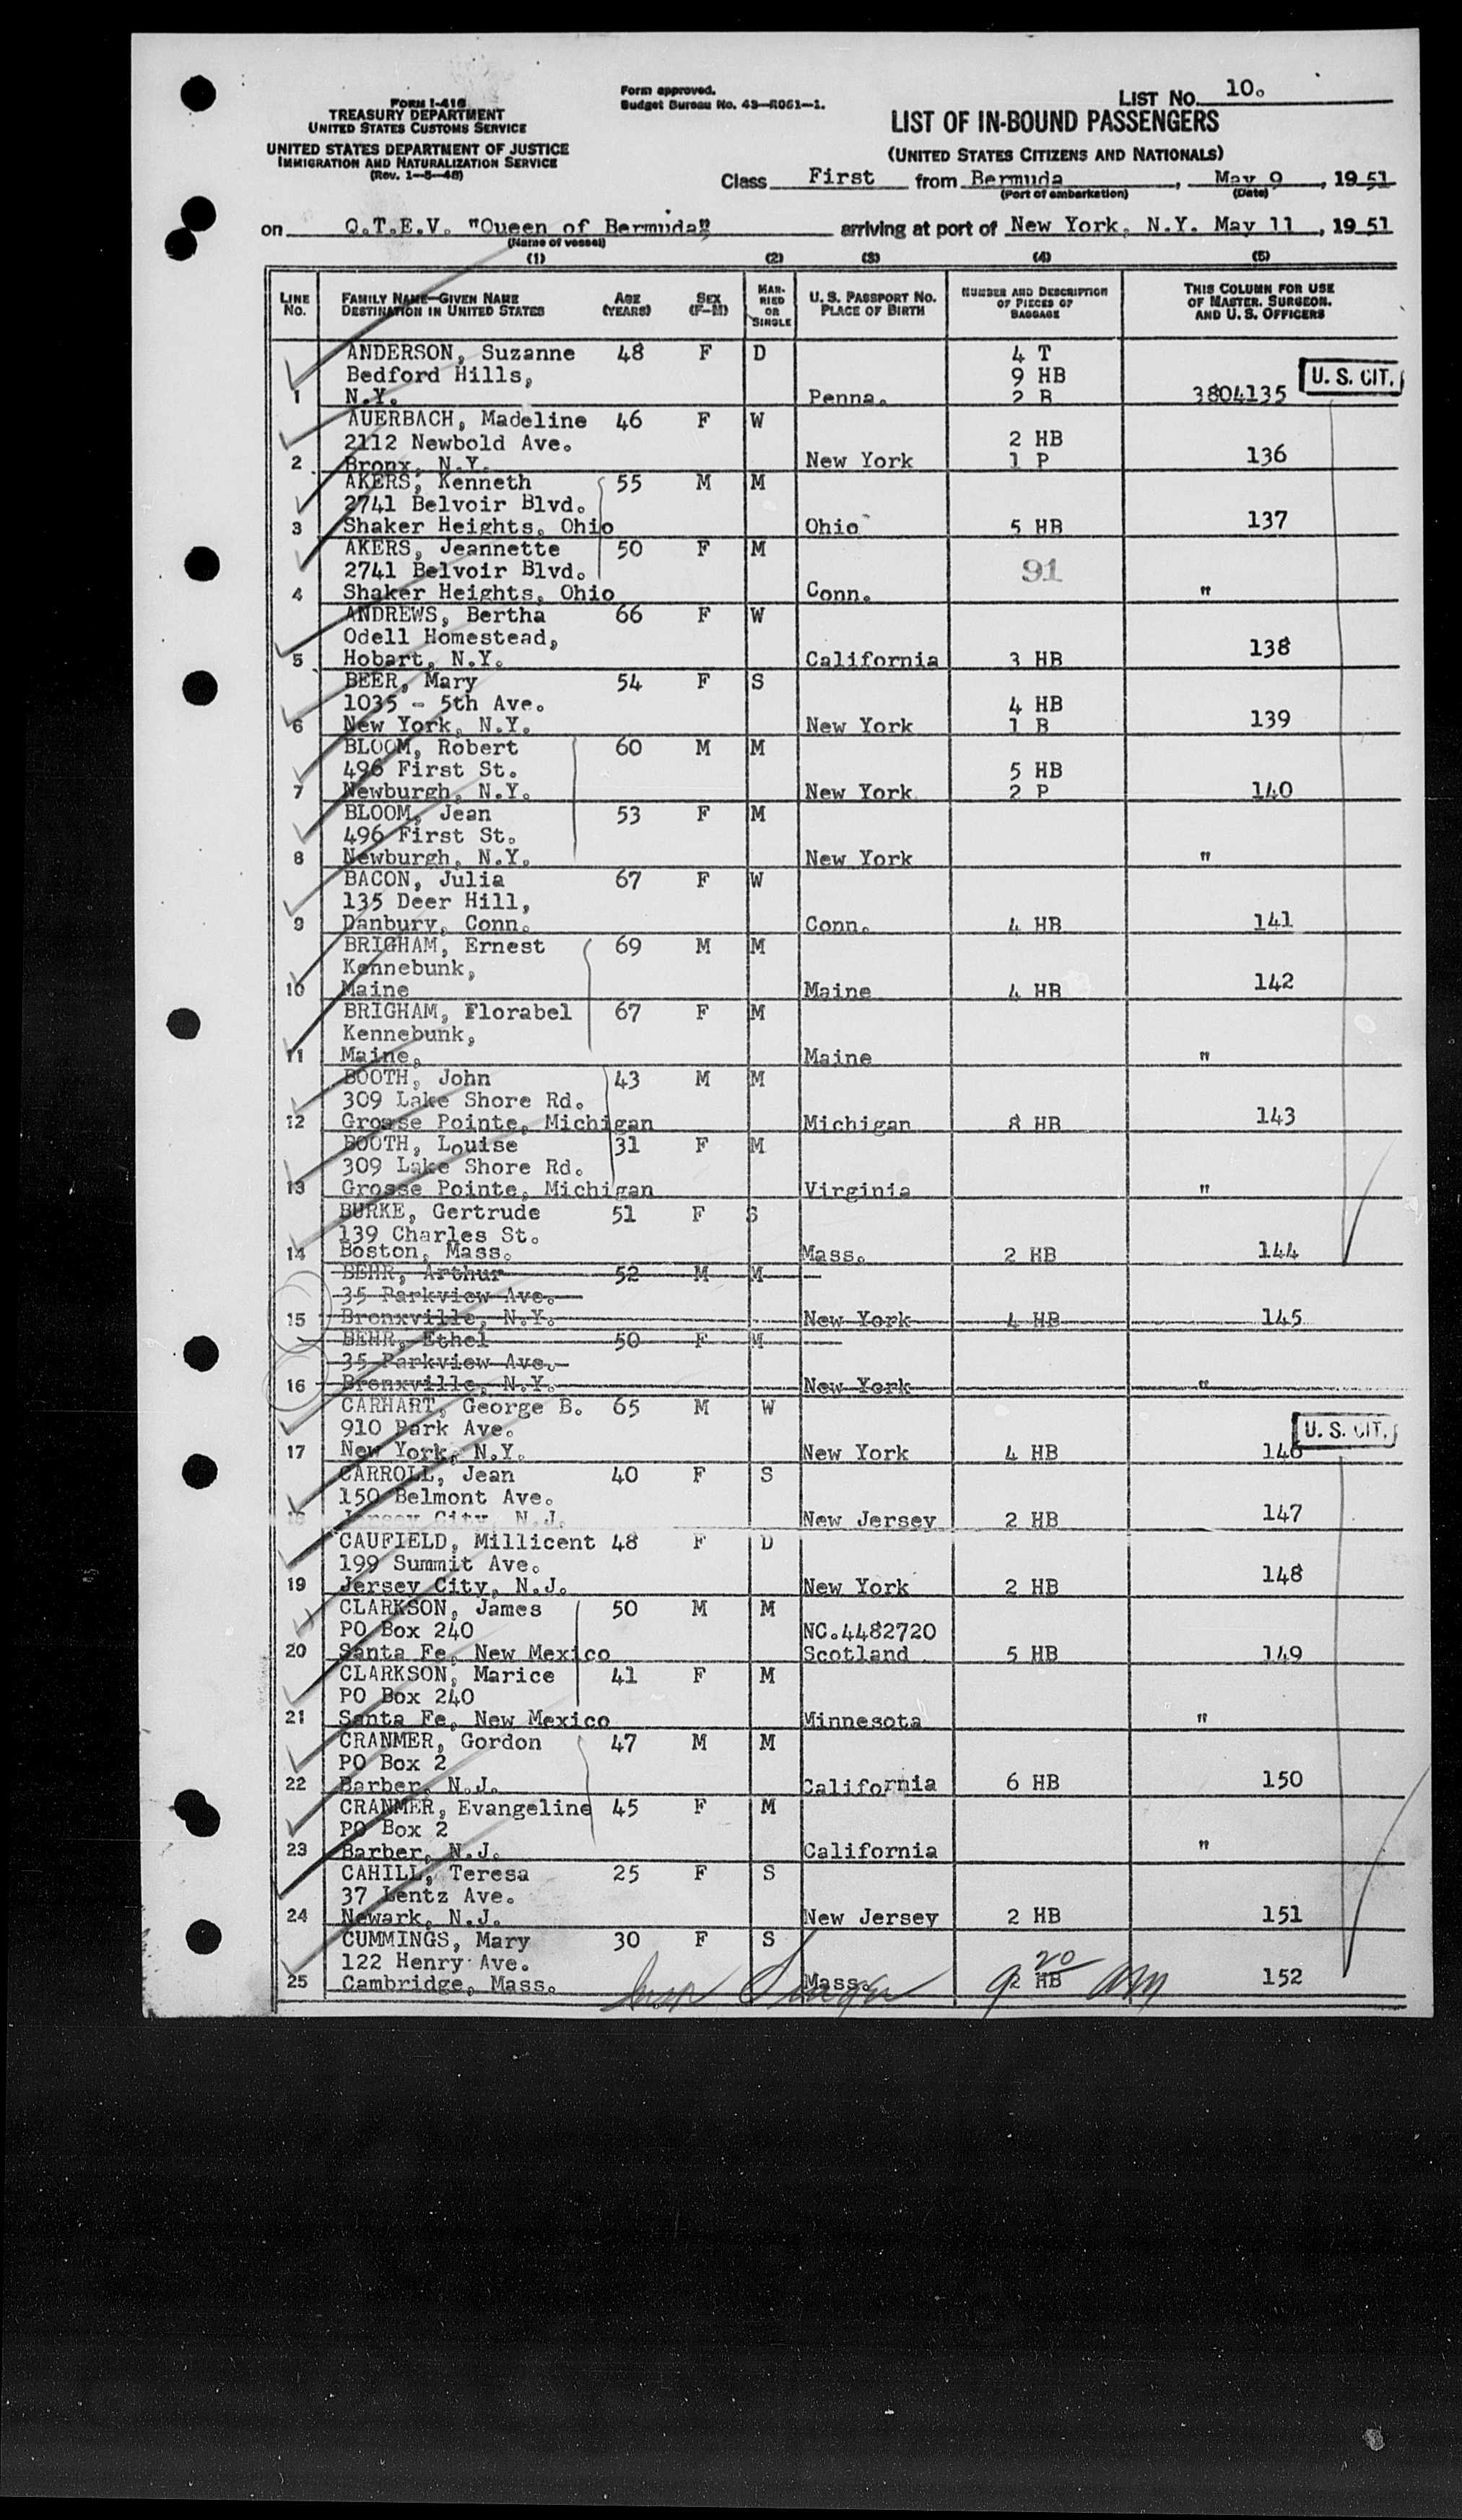 FORM I-416
TREASURY DEPARTMENT
UNITED STATES CUSTOMS SERVICE
UNITED STATES DEPARTMENT OF JUSTICE
IMMIGRATION AND NATURALIZATION SERVICE
(Rev. 1-5-48)
Form approved.
Budget Bureau No. 43-R061-1.
LIST NO. 10.
LIST OF IN-BOUND PASSENGERS
(UNITED STATES CITIZENS AND NATIONALS)
Class First from Bermuda, May 9, 1951
(Port of embarkation) (Date)
on Q.T.E.V. "Queen of Bermuda" arriving at port of New York, N.Y. May 11, 1951
(Name of vessel)
(1) (2) (3) (4) (5)
LINE NO. FAMILY NAME—GIVEN NAME DESTINATION IN UNITED STATES AGE (YEARS) SEX (F-M) MARRIED OR SINGLE U. S. PASSPORT NO. PLACE OF BIRTH NUMBER AND DESCRIPTION OF PIECES OF BAGGAGE THIS COLUMN FOR USE OF MASTER, SURGEON, AND U. S. OFFICERS
ANDERSON, Suzanne 48 F D 4 T
Bedford Hills, 9 HB U. S. CIT.
1 N.Y. Penna. 2 B 3804135
AUERBACH, Madeline 46 F W
2112 Newbold Ave. 2 HB
2 Bronx, N.Y. New York 1 P 136
AKERS, Kenneth 55 M M
2741 Belvoir Blvd.
3 Shaker Heights, Ohio Ohio 5 HB 137
AKERS, Jeannette 50 F M
2741 Belvoir Blvd. 91
4 Shaker Heights, Ohio Conn. "
ANDREWS, Bertha 66 F W
Odell Homestead,
5 Hobart, N.Y. California 3 HB 138
BEER, Mary 54 F S
1035 - 5th Ave. 4 HB
6 New York, N.Y. New York 1 B 139
BLOOM, Robert 60 M M
496 First St. 5 HB
7 Newburgh, N.Y. New York 2 P 140
BLOOM, Jean 53 F M
496 First St.
8 Newburgh, N.Y. New York "
BACON, Julia 67 F W
135 Deer Hill,
9 Danbury, Conn. Conn. 4 HB 141
BRIGHAM, Ernest 69 M M
Kennebunk,
10 Maine Maine 4 HB 142
BRIGHAM, Florabel 67 F M
Kennebunk,
11 Maine, Maine "
BOOTH, John 43 M M
309 Lake Shore Rd.
12 Grosse Pointe, Michigan Michigan 8 HB 143
BOOTH, Louise 31 F M
309 Lake Shore Rd.
13 Grosse Pointe, Michigan Virginia "
BURKE, Gertrude 51 F S
139 Charles St.
14 Boston, Mass. Mass. 2 HB 144
BEHR, Arthur 52 M M
35 Parkview Ave.
15 Bronxville, N.Y. New York 4 HB 145
BEHR, Ethel 50 F M
35 Parkview Ave.
16 Bronxville, N.Y. New York "
CARHART, George B. 65 M W
910 Park Ave. U. S. CIT.
17 New York, N.Y. New York 4 HB 146
CARROLL, Jean 40 F S
150 Belmont Ave.
18 Jersey City, N.J. New Jersey 2 HB 147
CAUFIELD, Millicent 48 F D
199 Summit Ave.
19 Jersey City, N.J. New York 2 HB 148
CLARKSON, James 50 M M
PO Box 240 NC.4482720
20 Santa Fe, New Mexico Scotland 5 HB 149
CLARKSON, Marice 41 F M
PO Box 240
21 Santa Fe, New Mexico Minnesota "
CRANMER, Gordon 47 M M
PO Box 2
22 Barber, N.J. California 6 HB 150
CRANMER, Evangeline 45 F M
PO Box 2
23 Barber, N.J. California "
CAHILL, Teresa 25 F S
37 Lentz Ave.
24 Newark, N.J. New Jersey 2 HB 151
CUMMINGS, Mary 30 F S
122 Henry Ave.
25 Cambridge, Mass. Mass. 2 HB 152
9 20 AM